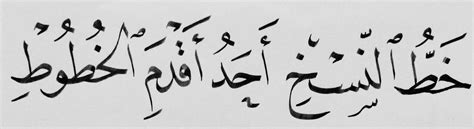 خَطُّ ٱلنَّسْخِ أَحَدُ أَقْدَمِ ٱلْخُطُوطِ